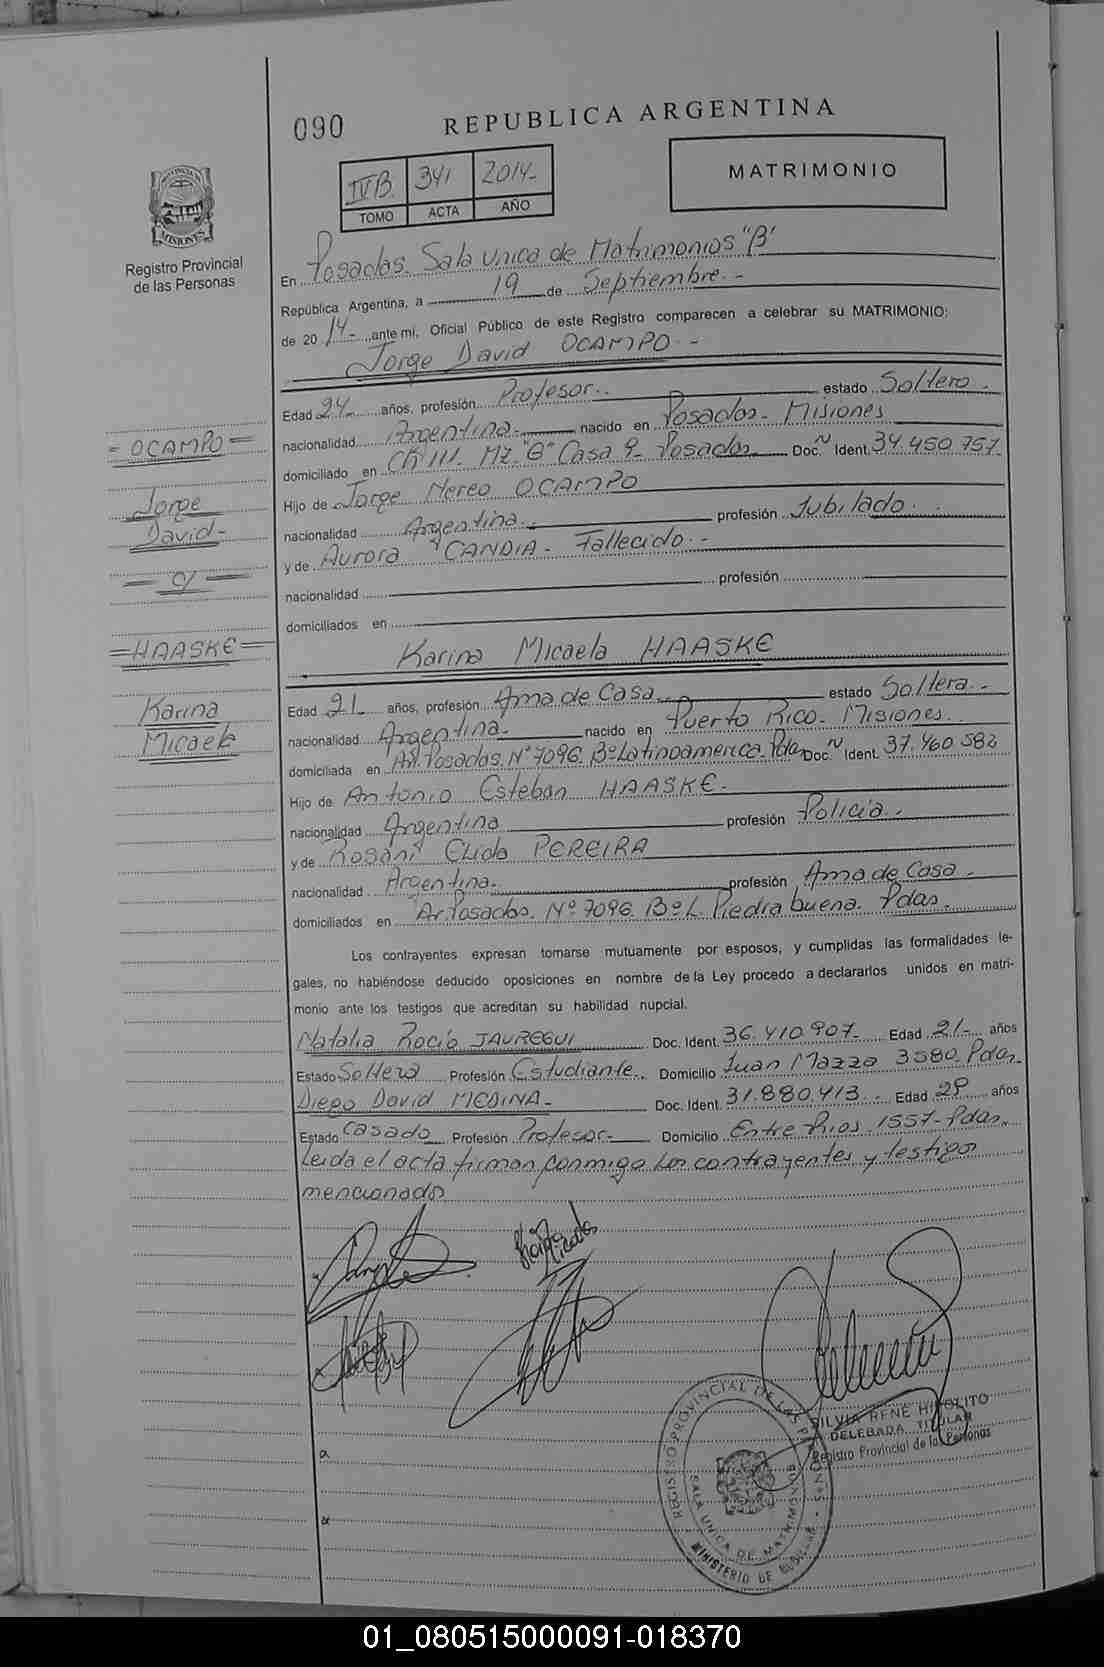 090
REPUBLICA ARGENTINA
IVB 341 2014-
TOMO ACTA AÑO
MATRIMONIO
PROVINCIA DE
MISIONES
Registro Provincial
de las Personas
En Posadas. Sala Unica de Matrimonios "B"
República Argentina, a 19 de Septiembre.-
de 20 14- ante mí, Oficial Público de este Registro comparecen a celebrar su MATRIMONIO:
Jorge David OCAMPO.-
Edad 24- años, profesión Profesor.- estado Soltero.-
nacionalidad Argentina.- nacido en Posadas- Misiones
domiciliado en Ch 111- Mz "G" Casa 9- Posadas Doc. Ident. 34.450.757-
Hijo de Jorge Nereo OCAMPO
nacionalidad Argentina.- profesión Jubilado.
y de Aurora CANDIA- Fallecido.-
nacionalidad profesión
domiciliados en
Karina Micaela HAASKE
Edad 21- años, profesión Ama de Casa estado Soltera.-
nacionalidad Argentina.- nacido en Puerto Rico- Misiones.
domiciliada en Av. Posadas Nº 7096. Bº Latinoamerica. Pdas Doc. Ident. 37.460.582
Hijo de Antonio Esteban HAASKE.
nacionalidad Argentina profesión Policia.-
y de Rosani Elida PEREIRA
nacionalidad Argentina.- profesión Ama de Casa.
domiciliados en Av. Posadas. Nº 7096. Bº L. Piedra buena. Pdas.
Los contrayentes expresan tomarse mutuamente por esposos, y cumplidas las formalidades le-
gales, no habiéndose deducido oposiciones en nombre de la Ley procedo a declararlos unidos en matri-
monio ante los testigos que acreditan su habilidad nupcial.
Natalia Rocío JAUREGUI Doc. Ident. 36.410.907- Edad 21- años
Estado Soltera Profesión Estudiante. Domicilio Juan Mazza 3580- Pdas.
Diego David MEDINA- Doc. Ident. 31.880.413.- Edad 29 años
Estado Casado Profesión Profesor- Domicilio Entre Rios 1557- Pdas.
Leida el acta firman conmigo los contrayentes y testigos
mencionados
= OCAMPO =
Jorge
David-
— c/ —
= HAASKE =
Karina
Micaela
Karina Micaela
SILVIA RENE HIPOLITO
DELEGADA TITULAR
Registro Provincial de las Personas
REGISTRO PROVINCIAL DE LAS PERSONAS
SALA UNICA DE MATRIMONIOS
MINISTERIO DE
a
a
01_080515000091-018370